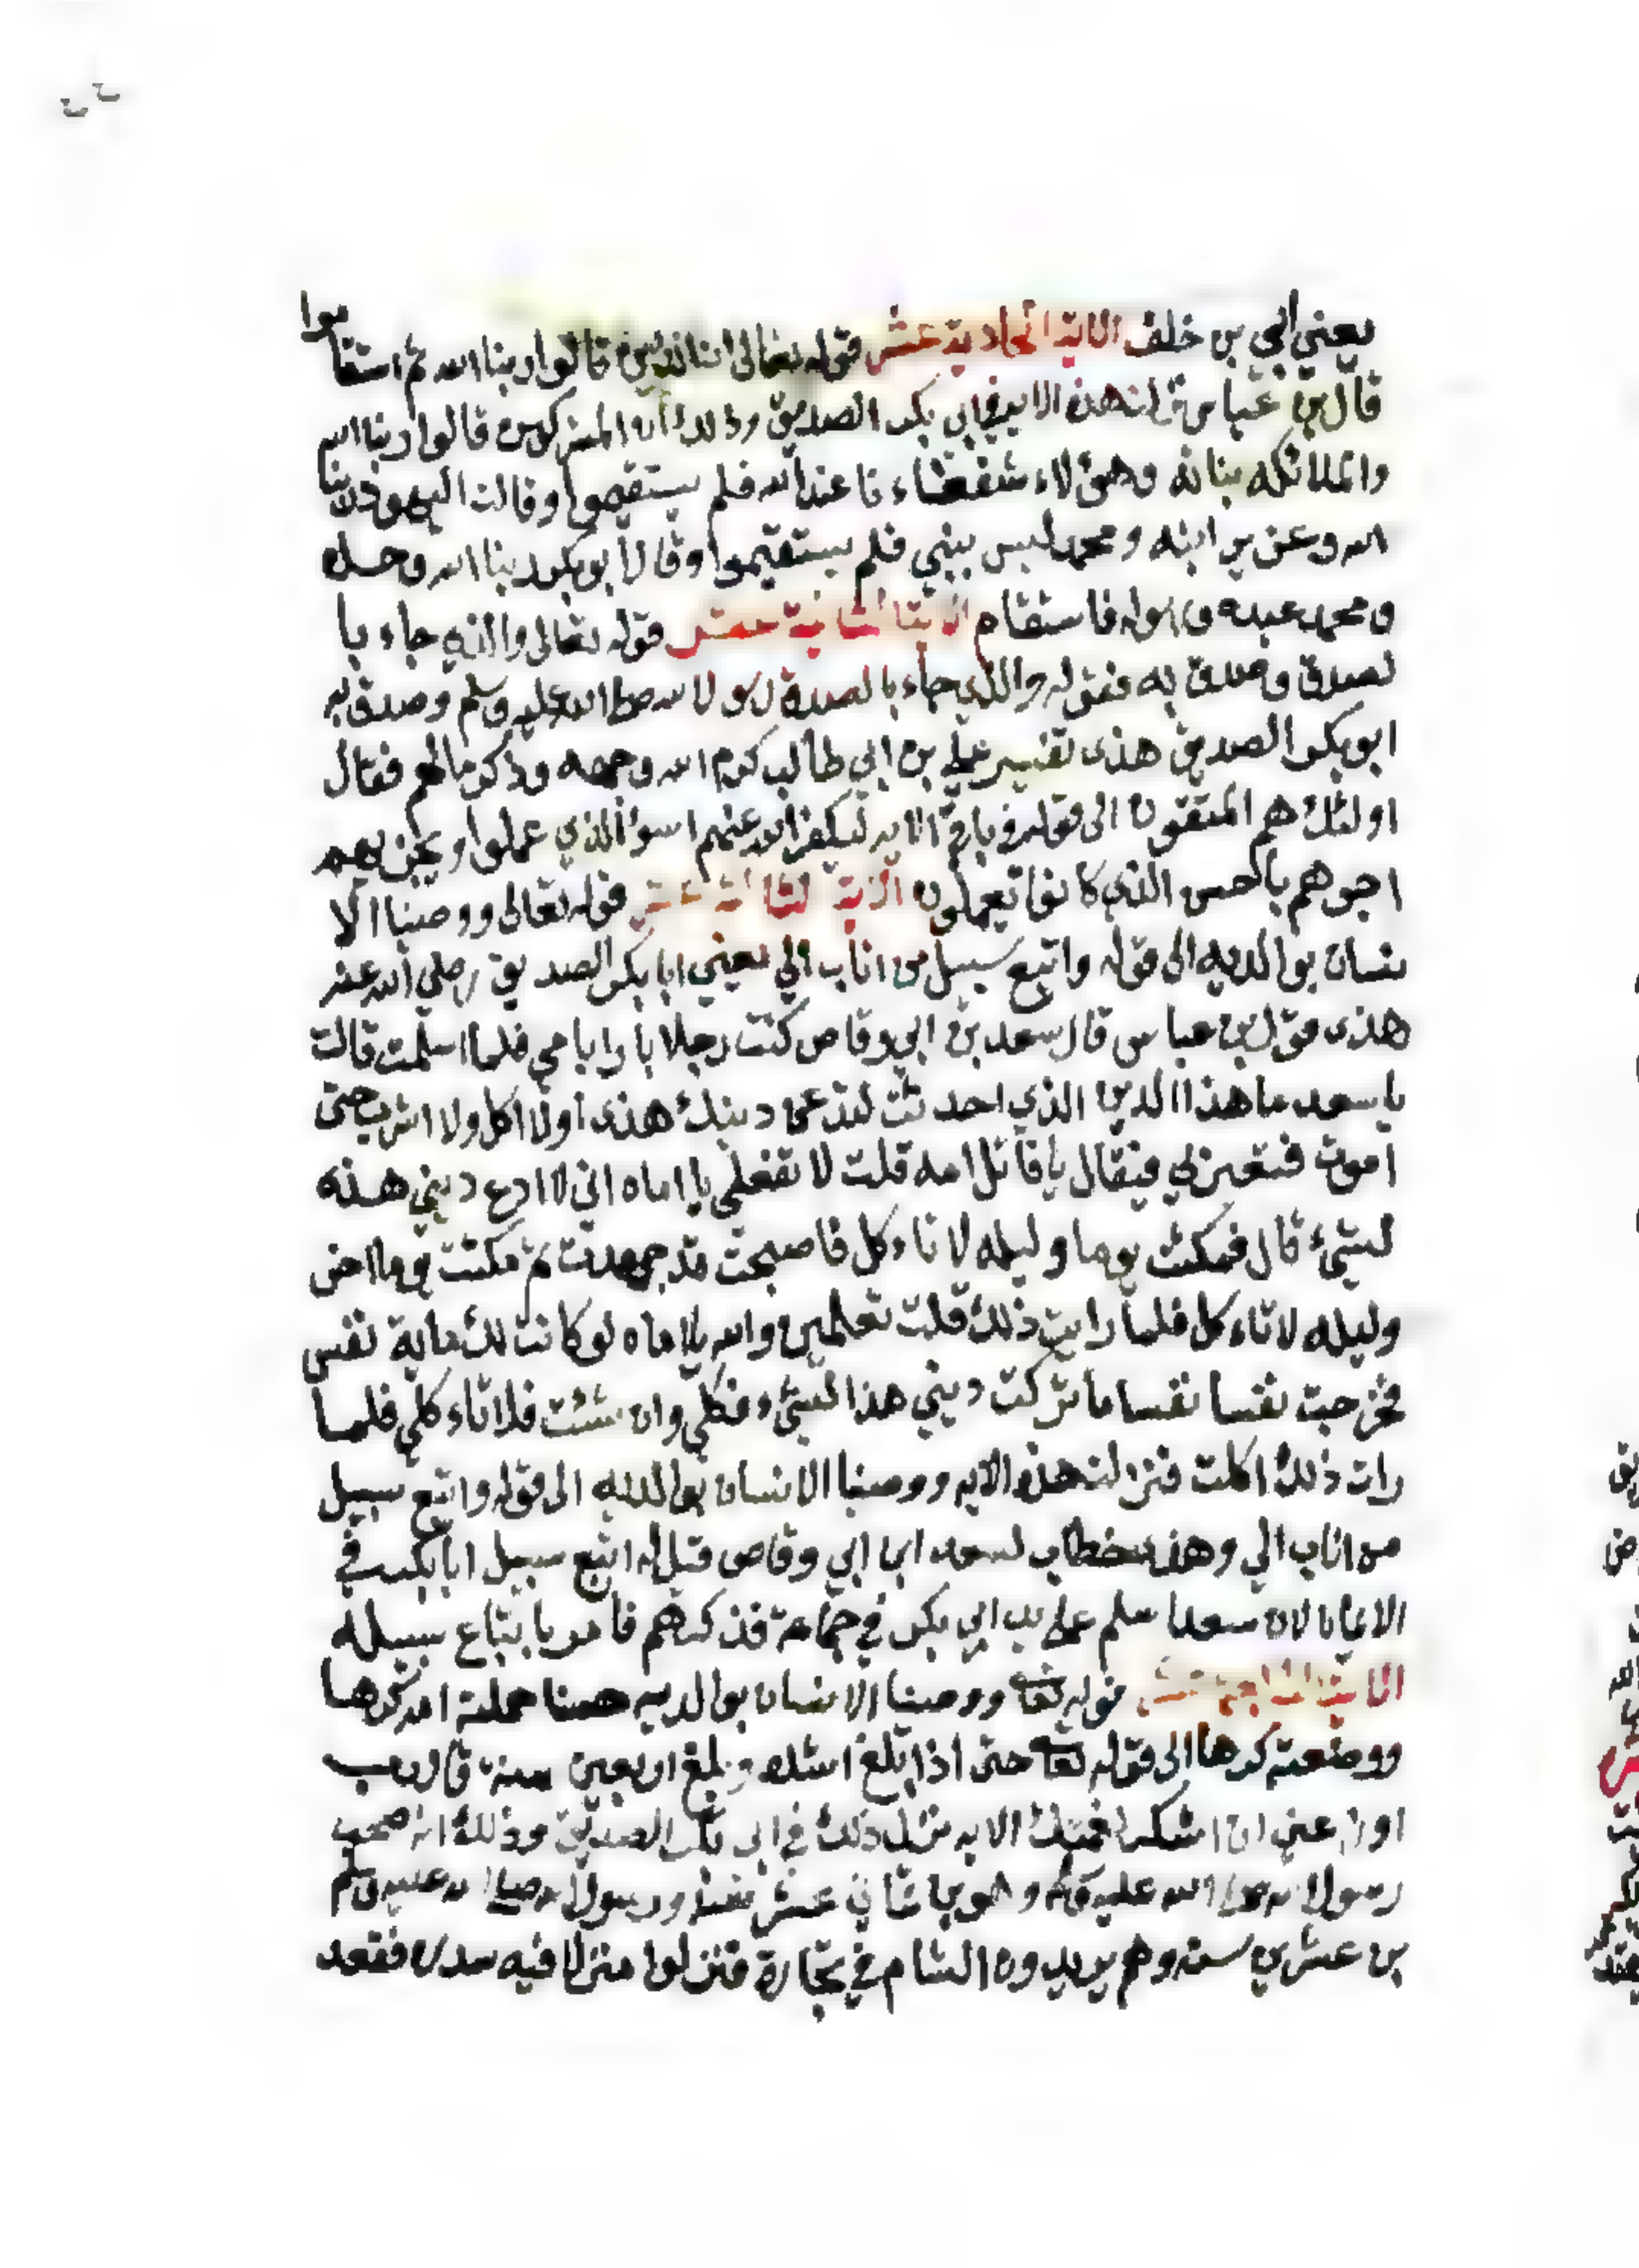 يعني ابي بن خلف الاية الحادية عشر قوله تعالى ان الذين قالوا ربنا الله ثم استقاموا
قال بن عباس نزلت هذه الاية في ابي بكر الصديق وذلك ان المشركين قالوا ربنا الله
والملائكه بناته وهؤلاء شفعاء نا عند الله فلم يستقيموا وقالت اليهود ربنا
الله وعزير ابنه ومحمد ليس بنبي فلم يستقيموا وقال ابو بكر ربنا الله وحده
ومحمد عبده ورسوله فاستقام الاية الثانية عشر قوله تعالى والذي جاء با
لصدق وصدق به فقوله والذي جاء بالصدق رسول الله صلى الله عليه وسلم وصدق به
ابو بكر الصديق هذى تفسير علي بن ابي طالب كرم الله وجهه وذكر مالهم فقال
اولئك هم المتقون الى قوله في باقي الايه ليكفر الله عنهم اسوأ الذي عملوا ويجزيهم
اجرهم باحسن الذي كانوا تعملون الاية الثالثة عشر قوله تعالى ووصينا الا
نسان بوالديه الى قوله واتبع سبيل من اناب الي يعني ابا بكر الصديق رضي الله عنه
هذى قول بن عباس قال سعد بن ابي وقاص كنت رجلا بارا بامي فلما اسلمت قالت
يا سعد ما هذا الدين الذي احدثت لتدعن دينك هذى او لا اكل ولا اشرب حتى
اموت فتعير بي فيقال يا قاتل امه قلت لا تفعلي يا اماه اني لا ادع ديني هذه
لشيء قال فمكثت يوما وليله لا تاءكل فاصبحت قد جهدت ثم مكثت يوما اخر
وليله لا تاءكل فلما رايت ذلك قلت تعلمين والله يا اماه لو كانت لك ماية نفس
فخرجت نفسا نفسا ما تركت ديني هذا لشيء فكلي وان شئت فلا تاءكلي فلما
رات ذلك اكلت فنزلت هذه الايه ووصينا الانسان بوالديه الى قوله واتبع سبيل
من اناب الي وهذه خطاب لسعد ابن ابي وقاص قيل له اتبع سبيل ابا بكر في
الايمان لان سعدا سلم على يد ابي بكر في جماعة فذكرهم فامر باتباع سبيله
الاية الرابعة عشر قوله تعا ووصينا الانسان بوالديه حسنا حملته امه كرها
ووضعته كرها الى قوله تعا حتى اذا بلغ اشده وبلغ اربعين سنة قال رب
اوزعني ان اشكر نعمتك الايه نزل ذلك في ابي بكر الصديق وذلك انه صحب
رسول الله صلى الله عليه وسلم وهو بن ثماني عشر سنة ورسول الله صلى الله عليه وسلم
بن عشرين سنة وهم يريدون الشام في تجارة فنزلوا منزلا فيه سدره فقعد